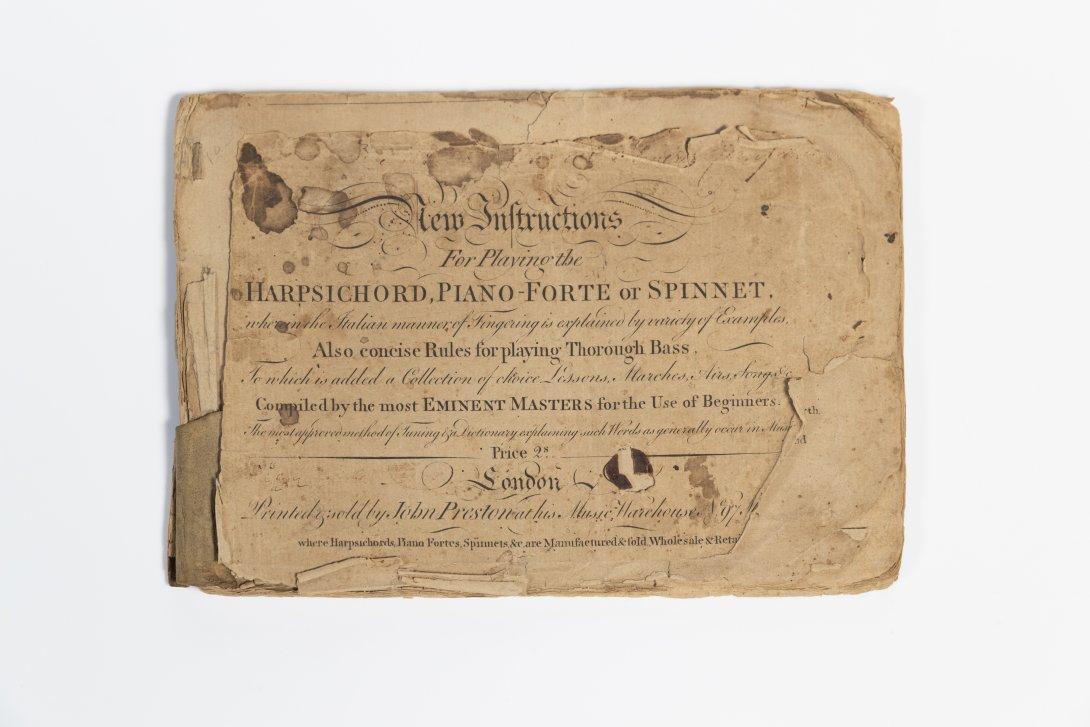 New Instructions
For Playing the
HARPSICHORD, PIANO-FORTE or SPINNET,
wherein the Italian manner of Fingering is explained by variety of Examples,
Also concise Rules for playing Thorough Bass,
To which is added a Collection of choice Lessons, Marches, Airs, Songs &c
Compiled by the most EMINENT MASTERS for the Use of Beginners.
The most approved method of Tuning & a Dictionary explaining such Words as generally occur in Musi
Price 2s
London
Printed & sold by John Preston at his Music Warehouse No. 97
where Harpsichords, Piano Fortes, Spinnets &c. are Manufactured & sold Wholesale & Retai